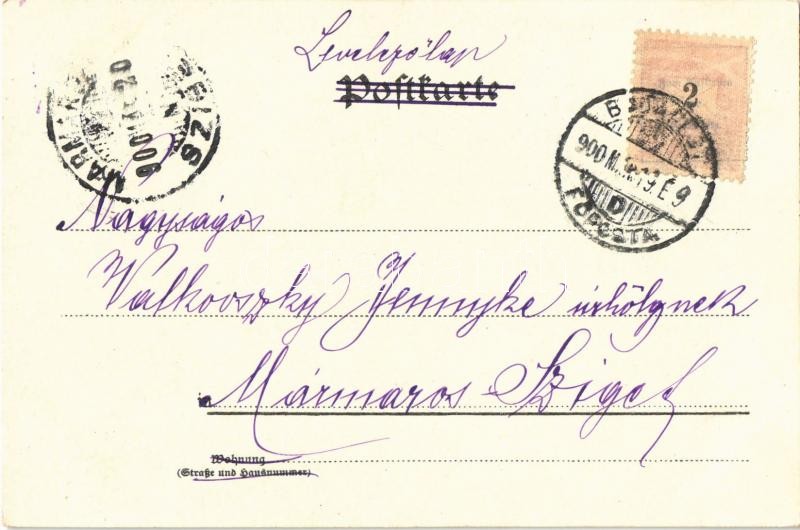 Levelezőlap
Postkarte
2
BUDAPEST
900
19. E 9
D
FŐPOSTA
900
20
Nagyságos
Valkovszky Jennyke úrhölgynek
in Mármaros-Sziget
Wohnung
(Straße und Hausnummer)